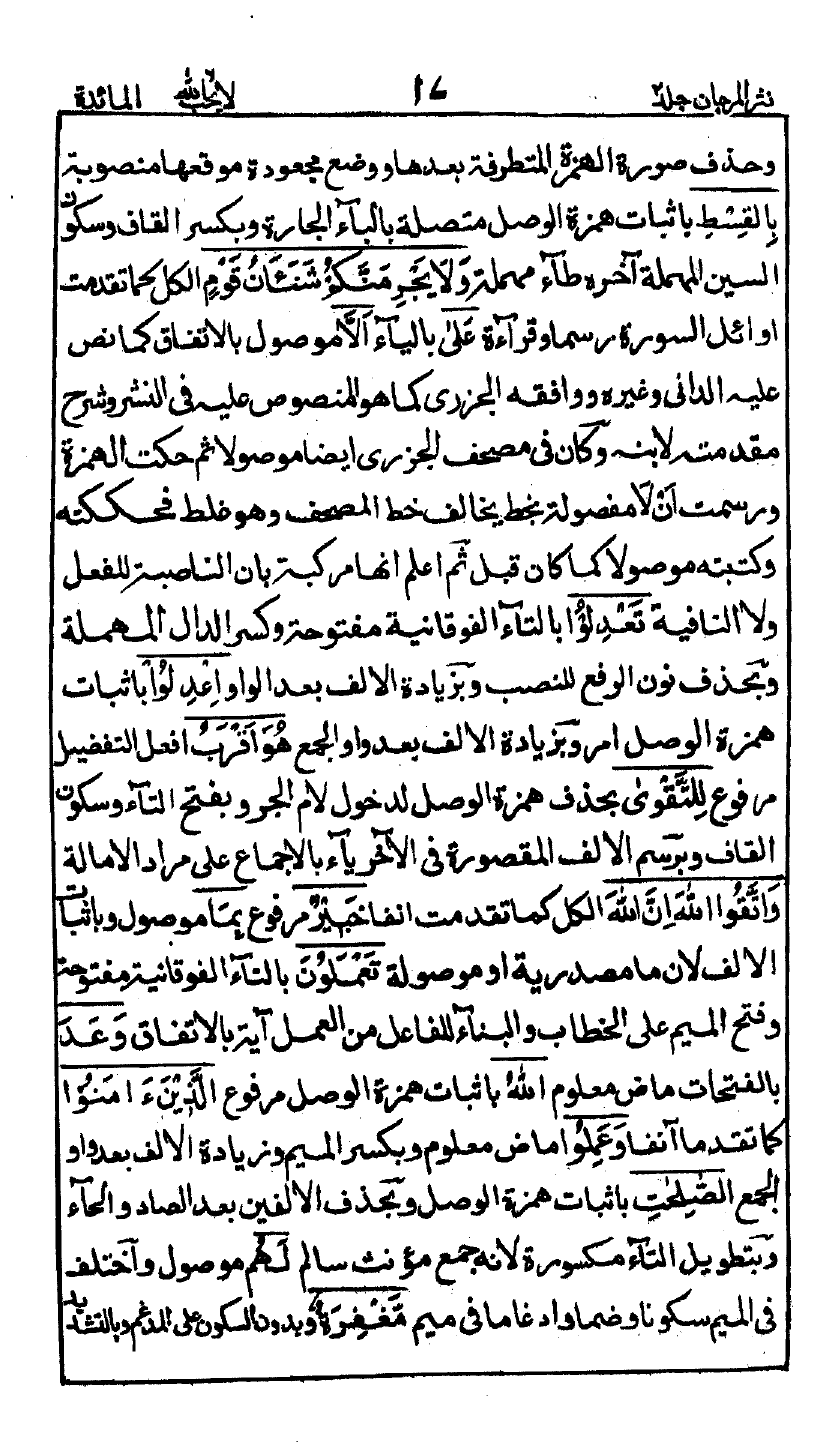 نثر المرجان جلد٢ ١٧ لا يحب الله المائدة
وحذف صورة الهمزة المتطرفة بعدها ووضع مجعودة موقعها منصوبة
بِالقِسْطِ باثبات همزة الوصل متصلة بالبآء الجارة وبكسر القاف وسكون
السين المهملة آخره طآء مهملة وَلَا يَجْرِمَنَّكُمْ شَنَـَٔانُ قَوْمٍ الكل كما تقدمت
اوائل السورة رسما وقرآءة عَلٰى باليآء اَلَّا موصول بالاتفاق كما نص
عليه الدانى وغيره ووافقه الجزرى كما هو المنصوص عليه فى النشر وشرح
مقدمته لابنه وكان فى مصحف الجزرى ايضا موصولا ثم حكت الهمزة
ورسمت اَنْ لَا مفصولة بخط يخالف خط المصحف وهو غلط فحككته
وكتبته موصولا كما كان قبل ثم اعلم انها مركبة بان الناصبة للفعل
ولا النافية تَعْدِلُوْا بالتآء الفوقانية مفتوحة وكسر الدال المهملة
وبحذف نون الرفع للنصب وبزيادة الالف بعد الواو اِعْدِلُوْا باثبات
همزة الوصل امر وبزيادة الالف بعد واو الجمع هُوَ اَقْرَبُ افعل التفضيل
مرفوع لِلتَّقْوٰى بحذف همزة الوصل لدخول لام الجر وبفتح التآء وسكون
القاف وبرسم الالف المقصورة فى الآخر يآء بالاجماع على مراد الامالة
وَاتَّقُوا اللهَ اِنَّ اللهَ الكل كما تقدمت انفا خَبِيْرٌ مرفوع بِمَا موصول وباثبات
الالف لان ما مصدرية او موصولة تَعْمَلُوْنَ بالتآء الفوقانية مفتوحة
وفتح الميم على الخطاب والبنآء للفاعل من العمل آية بالاتفاق وَعَدَ
بالفتحات ماض معلوم اللهُ باثبات همزة الوصل مرفوع الَّذِيْنَ ءَامَنُوْا
كما تقدما آنفا وَعَمِلُوا ماض معلوم وبكسر الميم وزيادة الالف بعد واو
الجمع الصّٰلِحٰتِ باثبات همزة الوصل وبحذف الالفين بعد الصاد والحآء
وبتطويل التآء مكسورة لانه جمع مؤنث سالم لَهُمْ موصول واختلف
فى الميم سكونا وضما وادغاما فى ميم مَّغْفِرَةٌ وبدون السكون على المدغم وبالتشديد